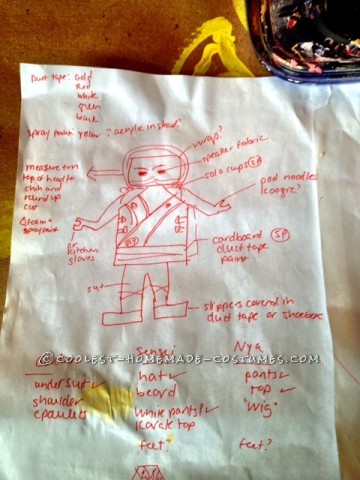 Duct tape: Gold
Red
white
green
black
Spray paint: yellow "acrylic instead"
wrap?
speaker fabric
solo cups (SP)
measure from
top of head to
chin and
round up
cut
pool noodles
foam +
spraypaint
or kitchen
gloves
cardboard
duct tape
paint
SP
slippers covered in
duct tape or shoeboxes
© COOLEST-HOMEMADE-COSTUMES.COM
Sensei
Nya
undersuit
shoulder
epaulets
hat
beard
white pants
karate top
feet?
pants
top
"wig"
feet?